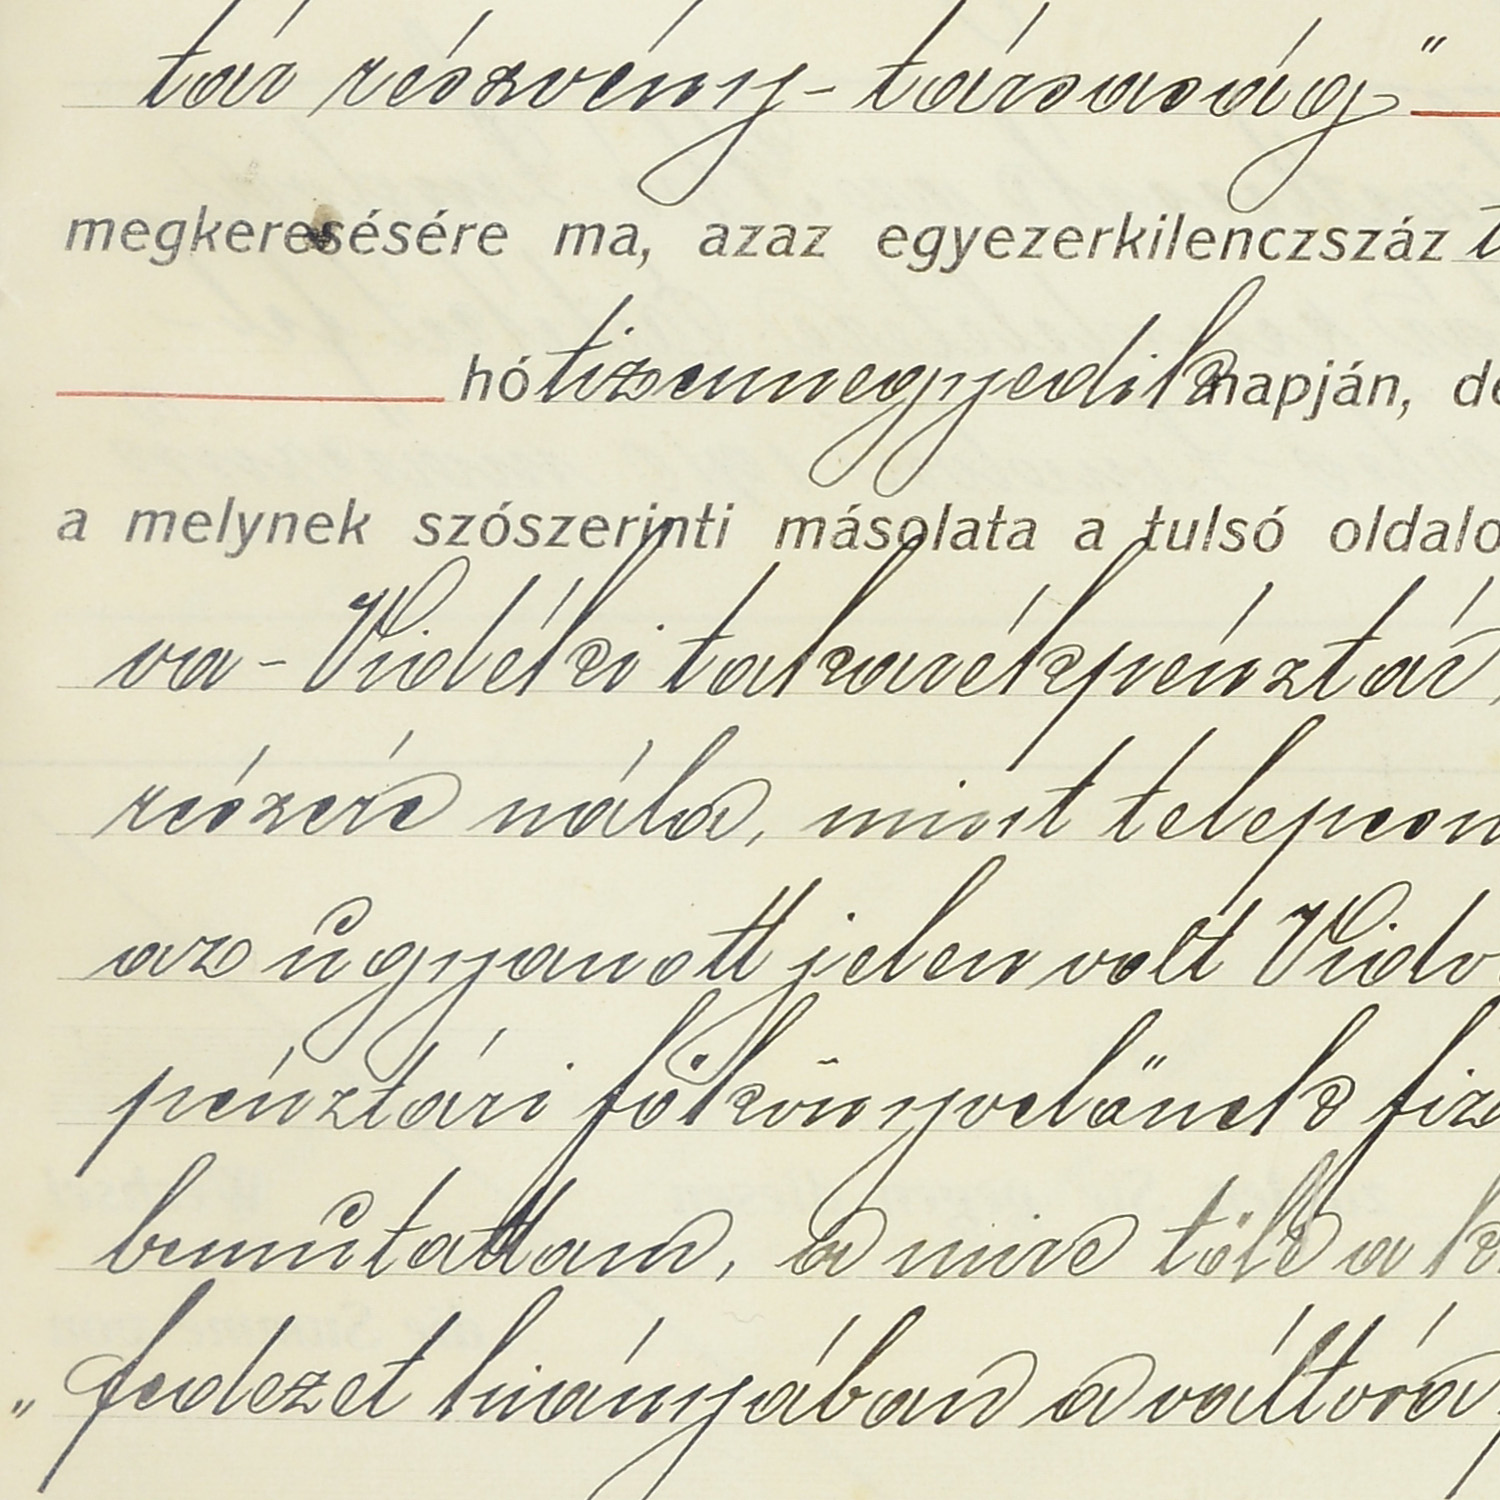 tár részvény-társaság"
megkeresésére ma, azaz egyezerkilenczszáz
hó tizennegyedik napján,
a melynek szószerinti másolata a tulsó
va-Vidéki takarékpénztár,
részére nála, mint
az ugyanott jelen volt
pénztári főkönyvelőnek
bemutattam, a mire tőle a
"fedezet hiányában a váltóra